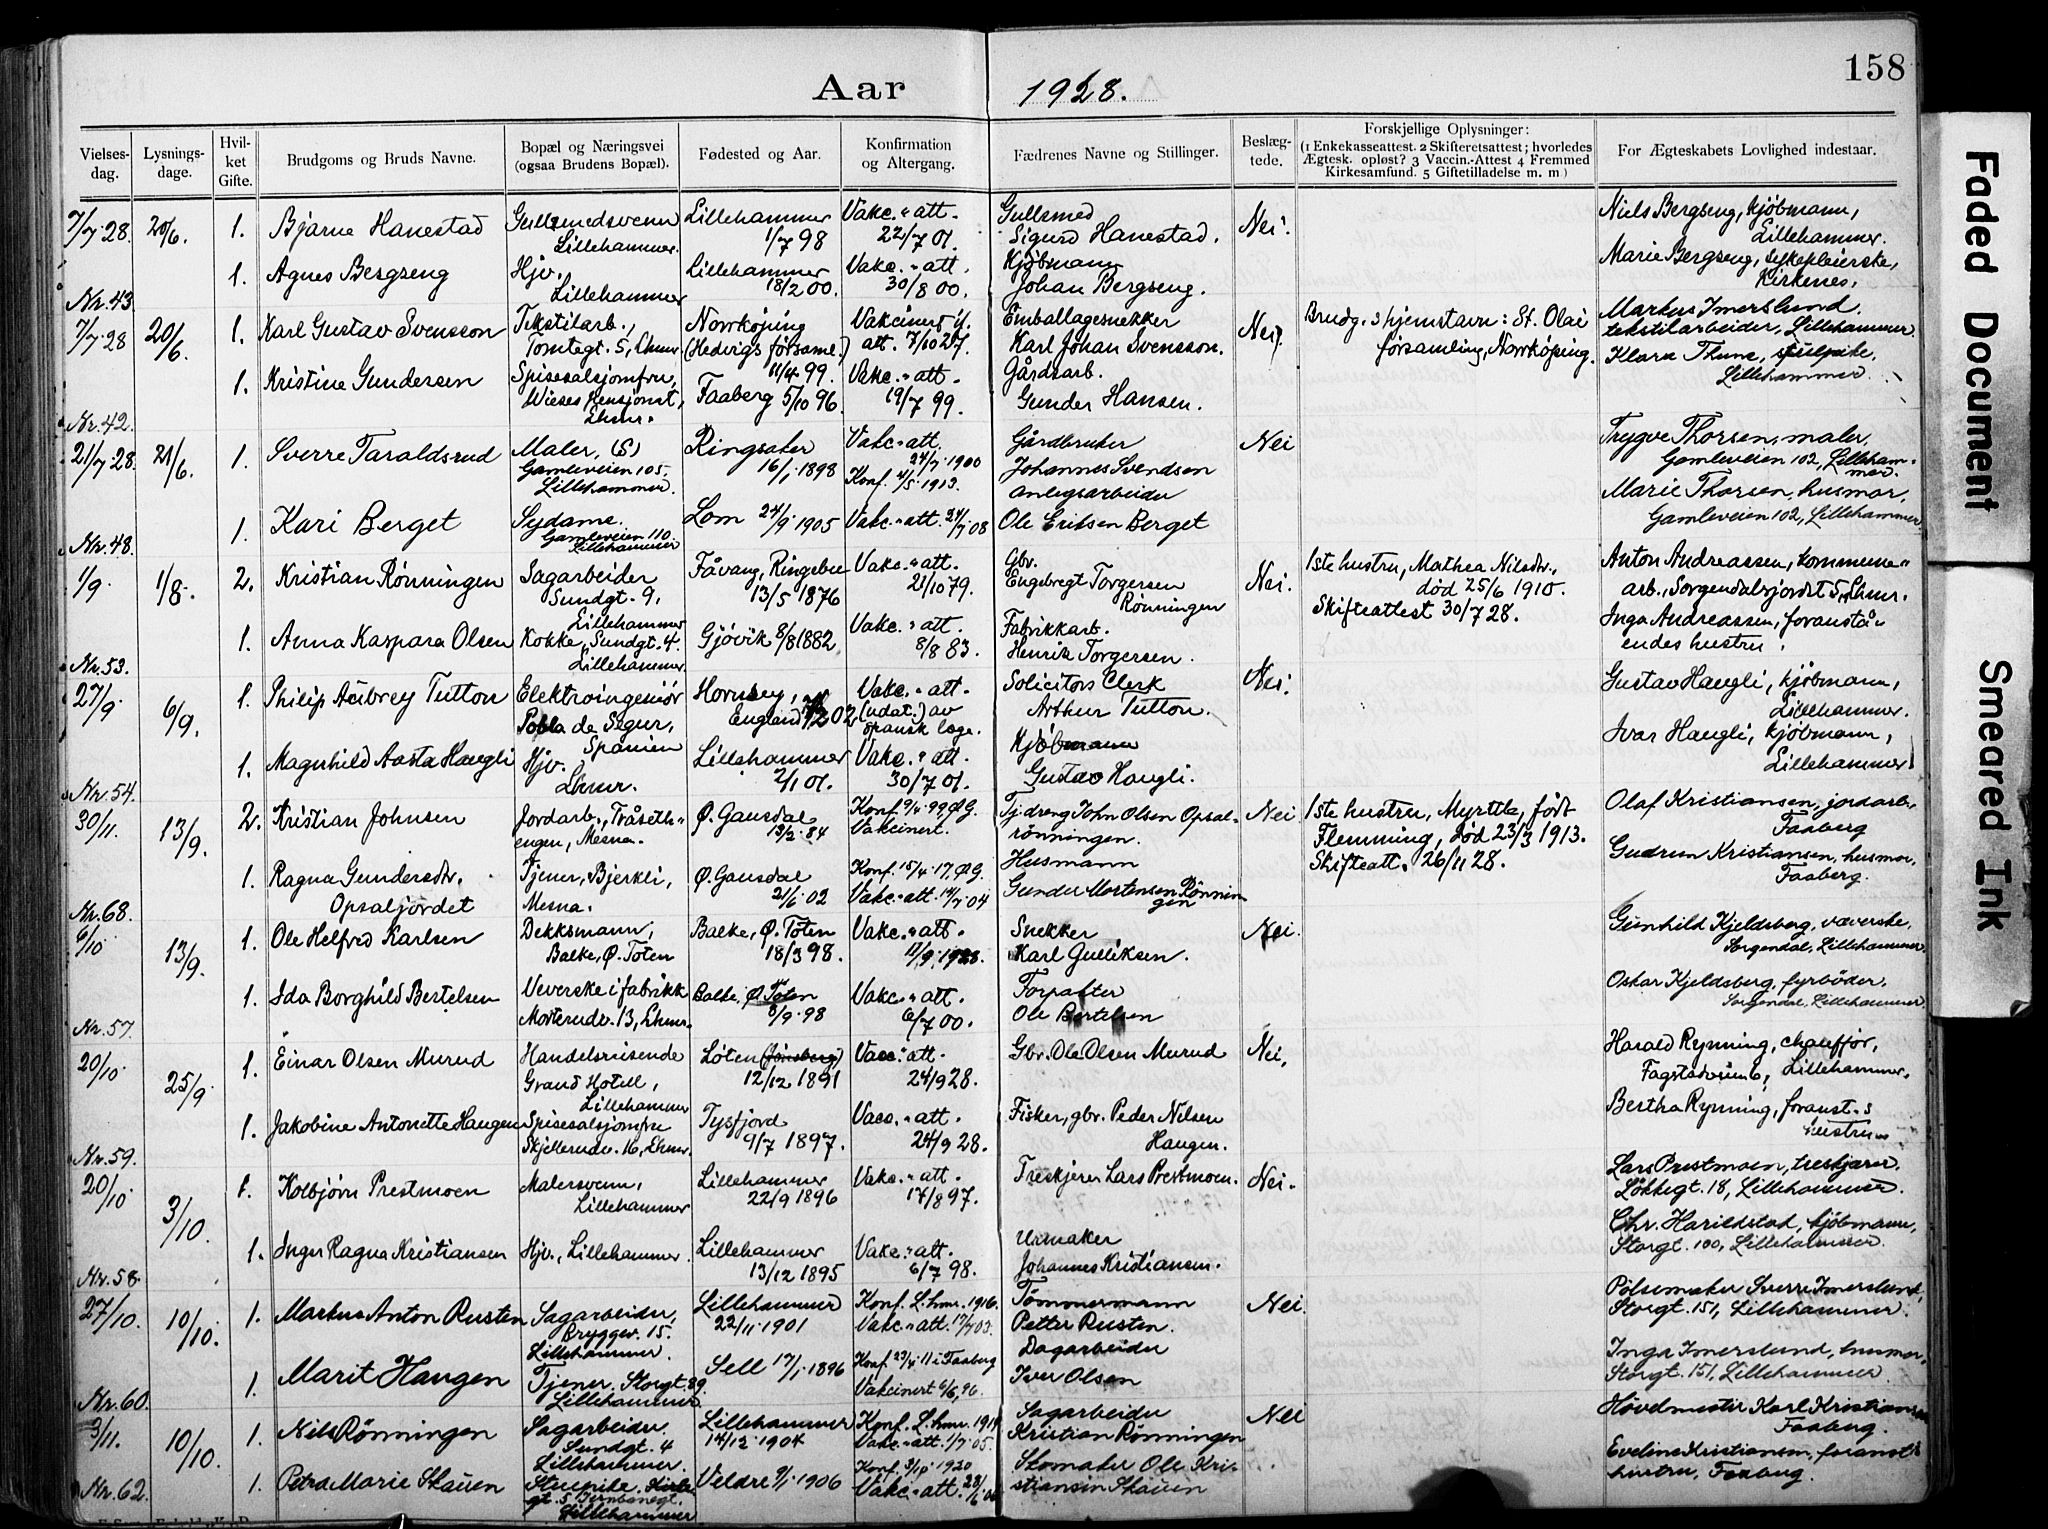 158
Aar 1928.
Vielses-dag.
Lysnings-dage.
Hvil-ket Gifte.
Brudgoms og Bruds Navne.
Bopæl og Næringsvei (ogsaa Brudens Bopæl).
Fødested og Aar.
Konfirmation og Altergang.
Fædrenes Navne og Stillinger.
Beslæg-tede.
Forskjellige Oplysninger: (1 Enkekasseattest. 2 Skifteretsattest; hvorledes Ægtesk. opløst? 3 Vaccin.-Attest 4 Fremmed Kirkesamfund. 5 Giftetilladelse m. m)
For Ægteskabets Lovlighed indestaar.
7/7 28. 20/6. 1. Bjarne Hanestad Gullsmedsvenn Lillehammer. Lillehammer 1/7 98 Vakc. att. 22/7 01. Gullsmed Sigurd Hanestad. Nei. Niels Bergseng, kjøbmann, Lillehammer.
1. Agnes Bergseng Hjv. Lillehammer Lillehammer 18/2 00. Vakc. att. 30/8 00. Kjøbmann Johan Bergseng. Marie Bergseng, sykepleierske, Kirkenes.
Nr. 43.
7/7 28 20/6. 1. Karl Gustav Svensson Tekstilarb., Tomtegt. 5, Lhmr. Norrköping (Hedvigs församl.) 11/4 99. Vakcinert if. att. 7/10 27. Emballagesnekker Karl Johan Svensson. Nei. Brudg.s hjemstavn: St. Olai församling, Norrköping. Markus Imerslund, tekstilarbeider, Lillehammer.
1. Kristine Gundersen Spisesalsjomfru, Wieses Pensjonat, Lhmr. Faaberg 5/10 96. Vakc. att. 19/7 99. Gårdsarb. Gunder Hansen. Klara Thune, Lillehammer.
Nr. 42.
21/7 28. 21/6. 1. Sverre Taraldsrud Maler, (S) Gamleveien 105, Lillehammer. Ringsaker 16/1 1898 Vakc. att. 24/7 1900 Konf. 4/5 1913. Gårdbruker Johannes Svendsen Nei Trygve Thorsen, maler, Gamleveien 102, Lillehammer.
1. Kari Berget Sydame. Gamleveien 110. Lillehammer Lom 24/9 1905 Vakc. att. 24/7 08 Anlegsarbeider Ole Eriksen Berget Marie Thorsen, husmor, Gamleveien 102, Lillehammer
Nr. 48.
1/9 1/8. 2. Kristian Rønningen Sagarbeider Sundgt. 9, Lillehammer Fåvang, Ringebu 13/5 1876 Vakc. att. 21/10 79. Gbr. Engebregt Torgersen Rønningen Nei. 1ste hustru, Mathea Nilsdtr., død 25/6 1910. Skifteattest 30/7 28. Anton Andreassen, kommune-arb., Sorgendalsjordet 5, Lhmr.
1. Anna Kaspara Olsen Kokke, Sundgt. 4. Lillehammer. Gjøvik 8/8 1882 Vakc. att. 8/8 83. Fabrikkarb. Henrik Torgersen. Inga Andreassen, foranstå-endes hustru.
Nr. 53.
27/9 6/9. 1. Philip Aubrey Tutton Elektroingeniør Pobla de Segur, Spanien Hornsey, England 02 Vakc. att. (udat.) av spansk læge. Solicitors Clerk Arthur Tutton. Nei. Gustav Haugli, kjøbmann, Lillehammer.
1. Magnhild Aasta Haugli Hjv. Lhmr. Lillehammer 2/1 01. Vakc. att. 30/7 01. Kjøbmann Gustav Haugli. Ivar Haugli, kjøbmann, Lillehammer
Nr. 54.
30/11. 13/9. 2. Kristian Johnsen Jordarb., Tråseth-engen, Mesna. Ø. Gausdal 13/2 84 Konf. 9/4 99, Ø.G. Vakcinert. Tjdreng John Olsen Opsal-rønningen. Nei 1ste hustru, Myrtle, født Flemming, død 23/3 1913. Skifteatt. 26/11 28. Olaf Kristiansen, jordarb., Faaberg
1. Ragna Gundersdtr. Opsaljordet Tjener, Bjerkli, Mesna. Ø. Gausdal 21/6 02 Konf. 15/4 17, Ø.G. Vakc. att. 14/7 04 Husmann Gunder Mortensen Rønningen Gudrun Kristiansen, husmor, Faaberg.
Nr. 68.
6/10 13/9. 1. Ole Helfred Karlsen Dekksmann, Balke, Ø. Toten Balke, Ø. Toten 18/3 98. Vakc. att. 11/9 1928. Snekker Karl Gulliksen. Nei. Gunhild Kjeldsberg, væverske, Sorgendal, Lillehammer.
1. Ida Borghild Bertelsen Veverske i fabrikk Morterudv. 13, Lhmr. Balke, Ø. Toten 8/9 98 Vakc. att. 6/7 00. Forpakter Ole Bertelsen Oskar Kjeldsberg, fyrbøder, Sorgendal, Lillehammer
Nr. 57.
20/10 25/9. 1. Einar Olsen Murud Handelsreisende Grand Hotell, Lillehammer Løten (Jønsberg) 12/12 1891 Vacc. att. 24/9 28. Gbr. Ole Olsen Murud Nei. Harald Rynning, chauffør, Fagstadveien 6, Lillehammer.
1. Jakobine Antonette Haugen Spisesalsjomfru Skjellerudv. 16, Lhmr. Tysfjord 9/7 1897. Vacc. att. 24/9 28. Fisker, gbr. Peder Nilsen Haugen. Bertha Rynning, foranst.s hustru
Nr. 59.
20/10 3/10. 1. Kolbjørn Prestmoen Malersvenn, Lillehammer Lillehammer 22/9 1896 Vakc. att. 17/8 97. Treskjerer Lars Prestmoen. Nei. Lars Prestmoen, treskjærer. Løkkegt. 18, Lillehammer.
1. Inger Ragna Kristiansen Hjv., Lillehammer. Lillehammer 13/12 1895 Vakc. att. 6/7 98. Urmaker Johannes Kristiansen. Chr. Harildstad, kjøbmann, Storgt. 100, Lillehammer.
Nr. 58.
27/10 10/10. 1. Markus Anton Rusten Sagarbeider, Bryggev. 15. Lillehammer. Lillehammer 22/11 1901 Konf. L.hmr. 1916. Vakc. att. 17/7 03. Tømmermann Petter Rusten. Nei. Pølsemaker Sverre Imerslund, Storgt. 151, Lillehammer.
1. Marit Haugen Tjener. Storgt. 89. Lillehammer. Sell 17/1 1896 Konf. 23/4 11 i Faaberg Vakcinert 6/6 96. Dagarbeider Iver Olsen Inga Imerslund, husmor, Storgt. 151, Lillehammer.
Nr. 60.
3/11. 10/10. 1. Nils Rønningen Sagarbeider. Sundgt. 4 Lillehammer. Lillehammer 14/12 1904 Konf. L.hmr. 1919 Vakc. att. 1/7 05. Sagarbeider Kristian Rønningen Nei Høvelmester Karl Kristiansen Faaberg.
1. Petra Marie Skåuen Lillehammer Veldre 9/1 1906 Konf. 1920 Vakc. att. Skomaker Ole Kri-stiansen Skåuen Eveline Kristiansen, foranst.s hustru, Faaberg.
Nr. 62.
Faded Document
Smeared Ink